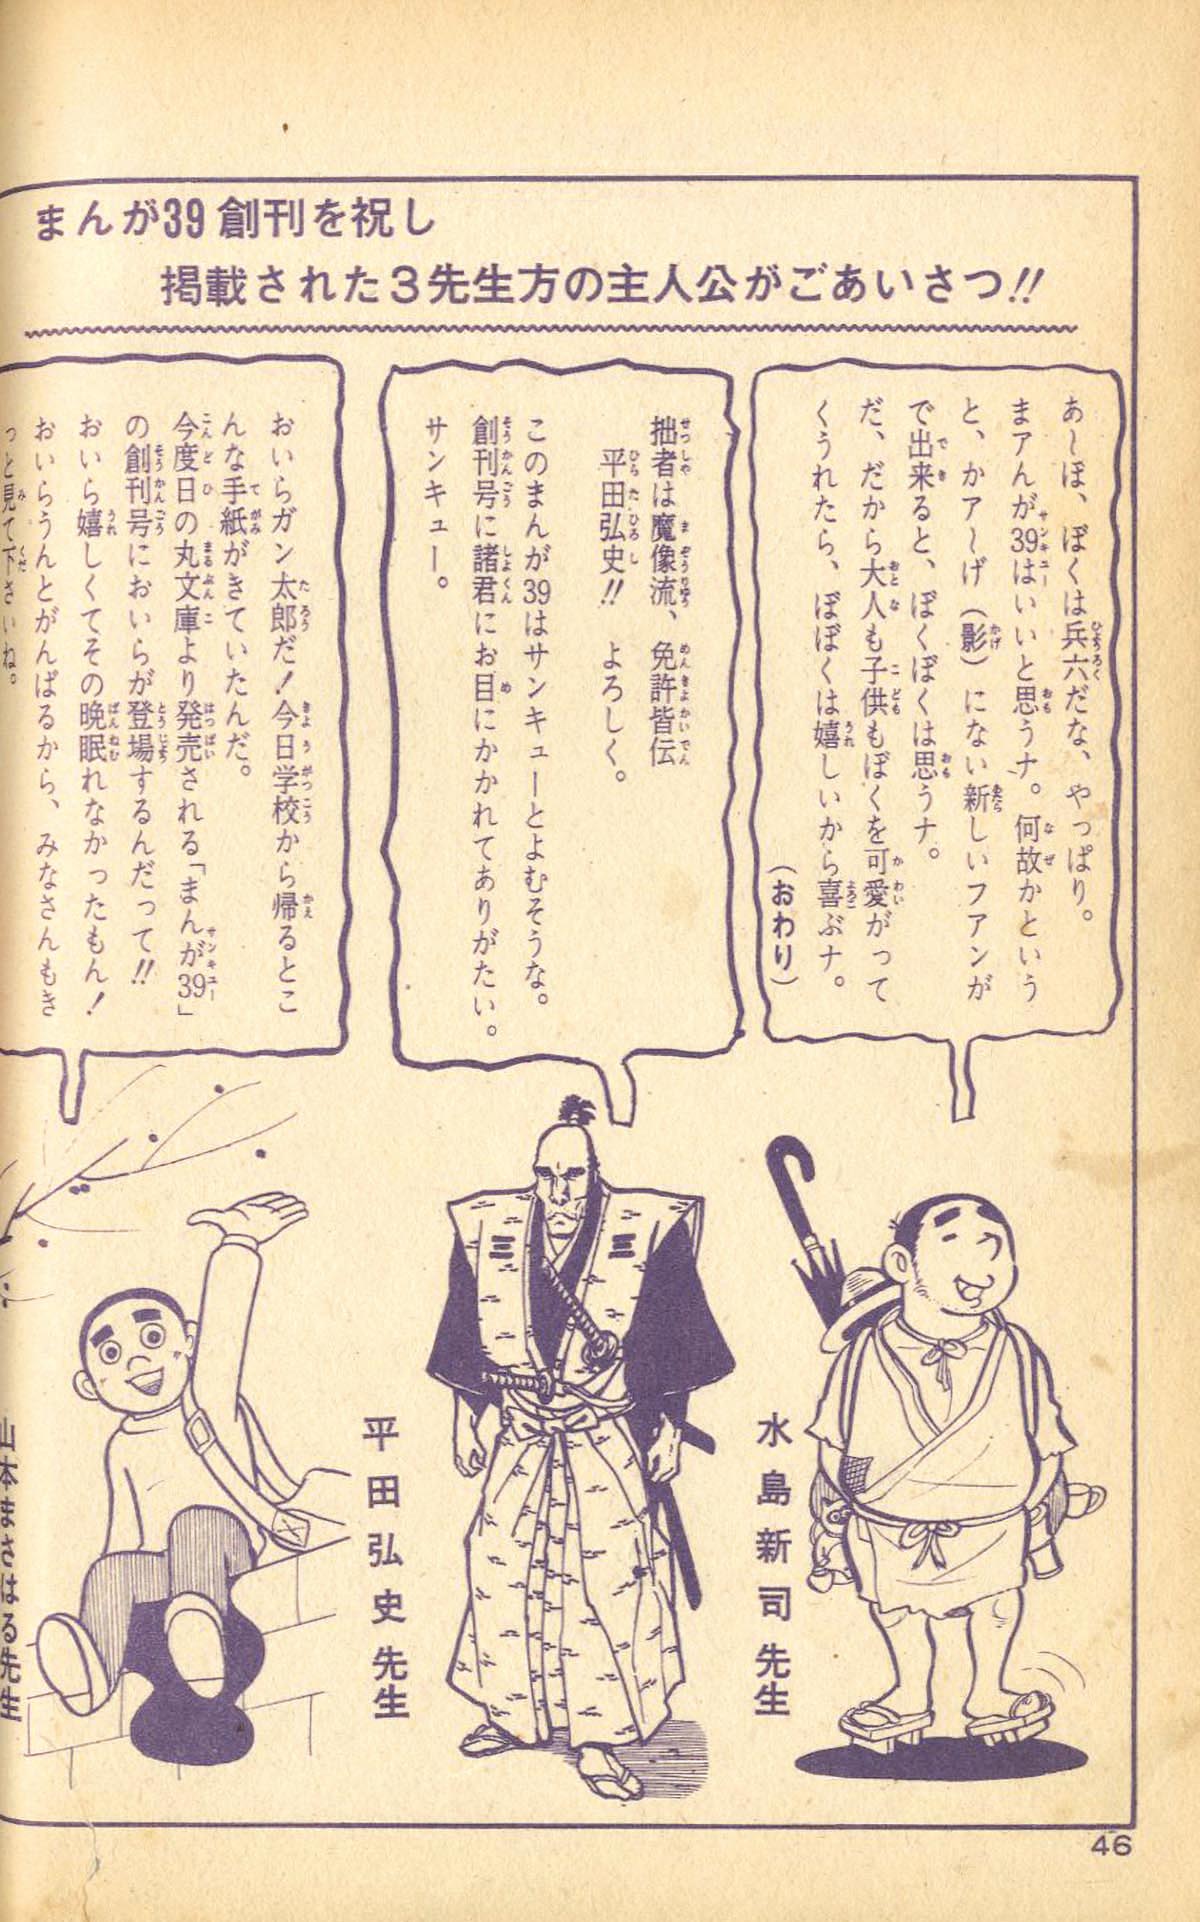 まんが39創刊を祝し
掲載された3先生方の主人公がごあいさつ!!
あ〜ぼ、ぼくは兵六だな、やっぱり。
まアんが39はいいと思うナ。何故かという
と、かア〜げ(影)にない新しいファンが
で出来ると、ぼくぼくは思うナ。
だ、だから大人も子供もぼくを可愛がって
くうれたら、ぼぼくは嬉しいから喜ぶナ。
(おわり)
拙者は魔像流、免許皆伝
平田弘史!! よろしく。
このまんが39はサンキューとよむそうな。
創刊号に諸君にお目にかかれてありがたい。
サンキュー。
おいらガン太郎だ!今日学校から帰るとこ
んな手紙がきていたんだ。
今度日の丸文庫より発売される「まんが39」
の創刊号においらが登場するんだって!!
おいら嬉しくてその晩眠れなかったもん!
おいらうんとがんばるから、みなさんもき
っと見て下さいね。
水島新司先生
平田弘史先生
山本まさはる先生
46